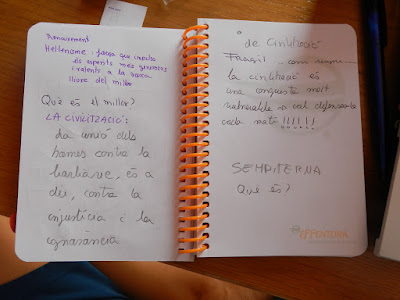 Renaixement
Hel·lenisme: força que incita
els esperits més generosos
i valents a la recerca
lliure del millor
Què és el millor?
LA CIVILITZACIÓ:
La unió dels
homes contra la
barbàrie, és a
dir, contra la
injustícia i la
ignorància
de Civilització
Fràgil
la civilització és
una conquista molt
vulnerable i cal defensar-la
cada matí !!!!!!
SEMPITERNA
Què és?
APPENTURA